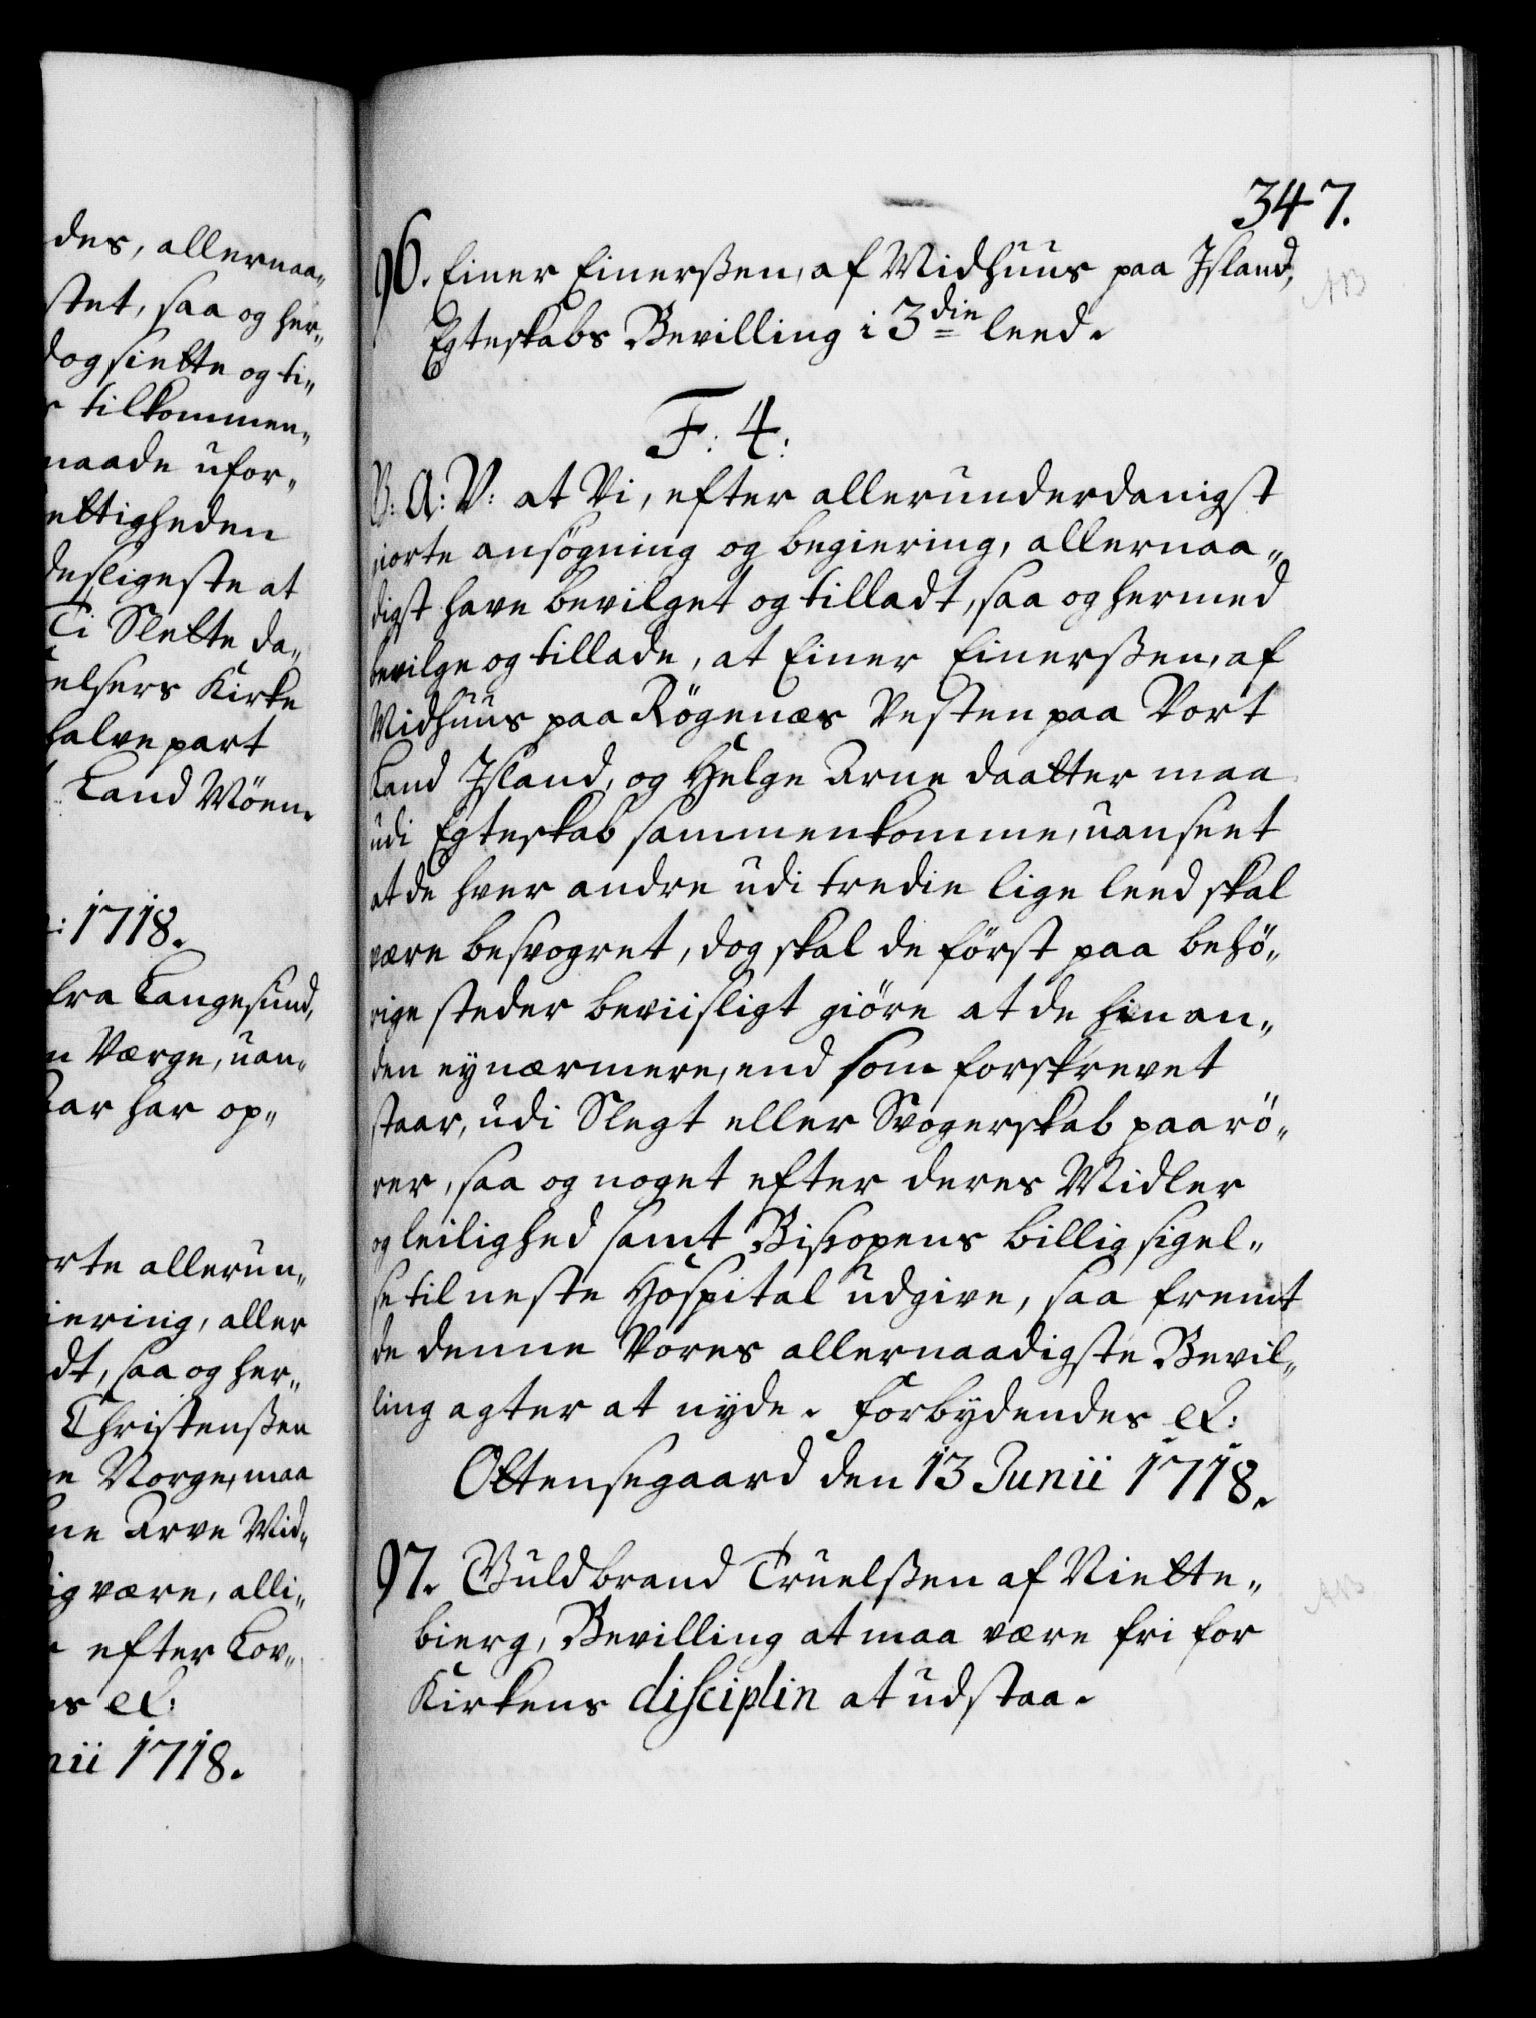 des, allernaa„
stet, saa og her„
dog siette og ti„
tilkommen„
naade ufor„
ettigheden
desligeste at
Ti Slette da„
elsers Kirke
halve part
Land Möen.
: 1718.
fra Langesund,
n Værge, uan„
har op„
orte allerun„
iering, aller
dt, saa og her„
Christenßen
ge Norge, maa
ne Arve Mid„
ig være, alli„
efter Lov„
es etc:
nii 1718.
347.
96. Einer Einerßen, af Midhuus paa Island,
Egteskabs Bevilling i 3die leed.
F: 4:
G: A: V: at Vi, efter allerunderdanigst
giorte ansögning og begiering, allernaa„
digst have bevilget og tilladt, saa og hermed
bevilge og tillade, at Einer Einerßen, af
Midhuus paa Rögenæs Vesten paa Vort
Land Island, og Helge Arne daatter maa
udi Egteskab sammenkomme, uanseet
at de hver andre udi tredie lige leed skal
være besvogret, dog skal de först paa behö„
rige steder beviisligt giöre at de hinan„
den ey nærmere, end som forskrevet
staar, udi Slegt eller Svogerskab paarö„
rer, saa og noget efter deres Midler
og leilighed samt Biscopens billig sigel„
se til neste Hospital udgive, saa fremt
de denne Vores allernaadigste Bevil„
ling agter at nyde. Forbydendes etc:
Ottensegaard den 13 Junii 1718.
97. Guldbrand Truelßen af Niette„
bierg, Bevilling at maa være fri for
Kirkens disciplin at udstaa.